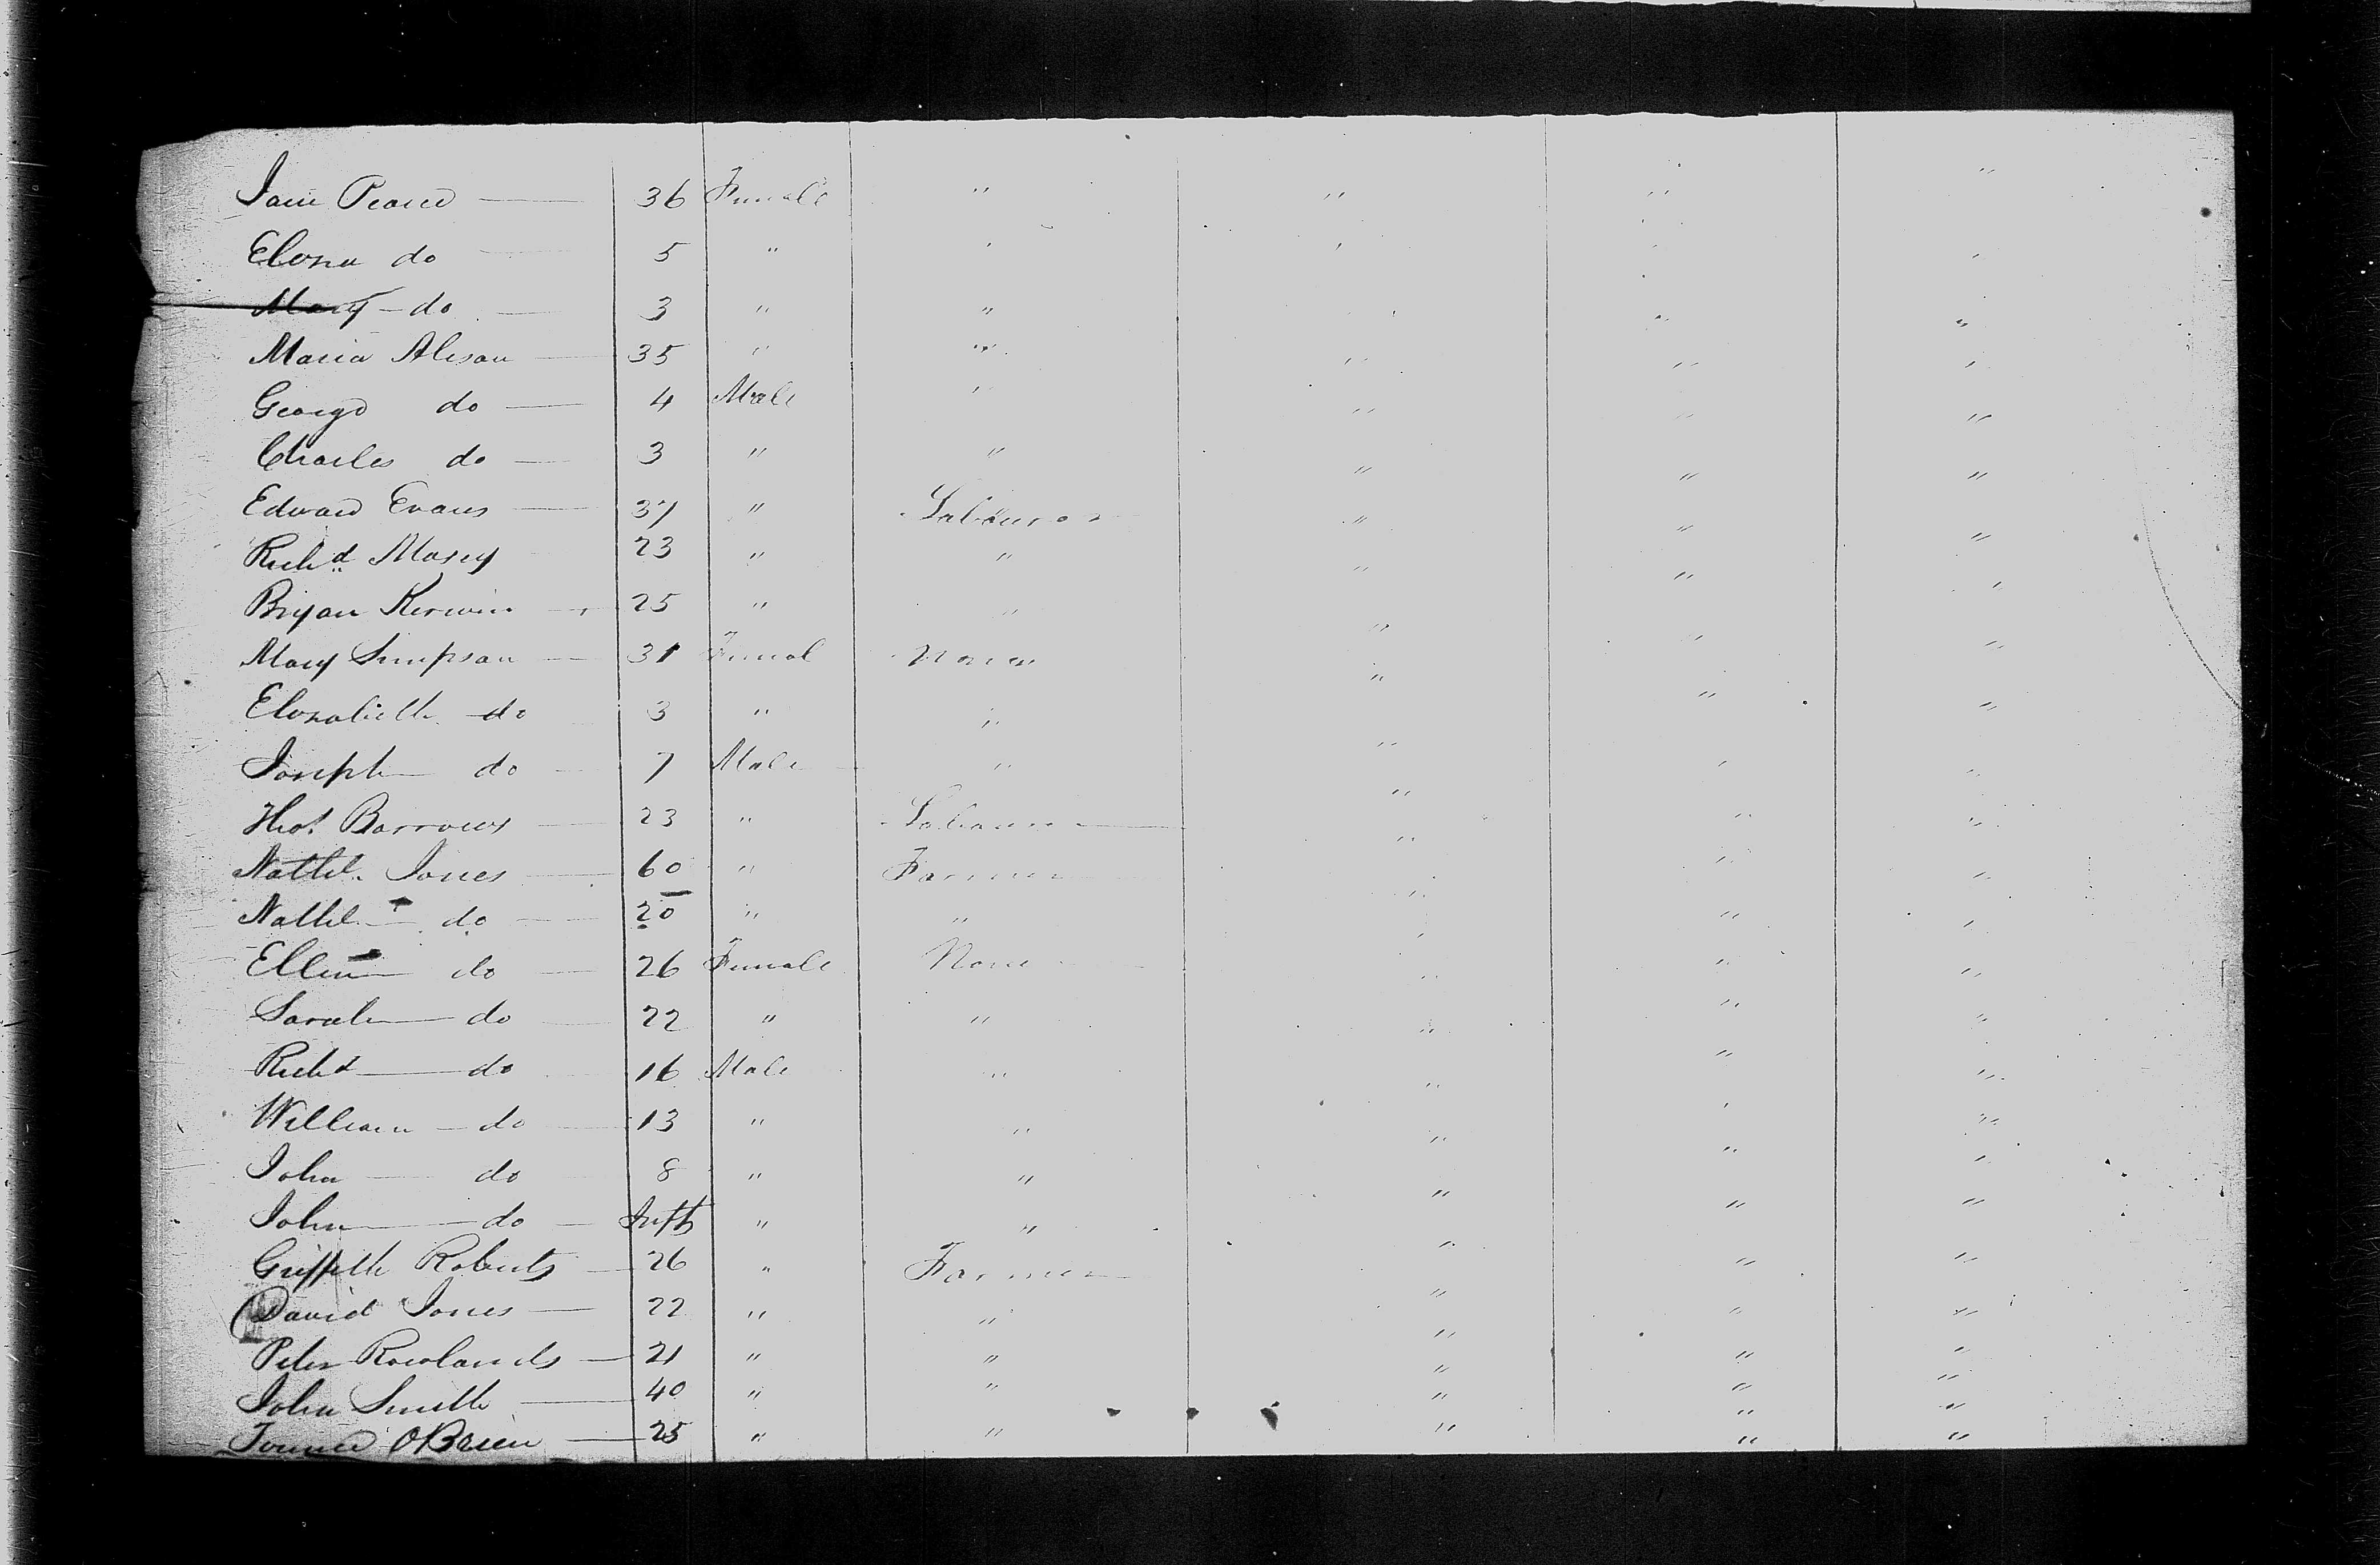 Jane Pearce 36 Female " " " "
Eliza do 5 " " " " "
Mary do 3 " " " "
Maria Alison 35 " " " " "
George do 4 Male " " " "
Charles do 3 " " " " "
Edward Evans 37 " Labourer " " "
Richd Masey 23 " " " " "
Bryan Kerwin 25 " " " " "
Mary Simpson 31 Femal None " " "
Elizabeth do 3 " " " " "
Joseph do 7 Male " " " "
Thos Barrows 23 " Labourer " " "
Nathl. Jones 60 " Farmer " " "
Nathl do 20 " " " " "
Ellen do 26 Female None " " "
Sarah do 22 " " " " "
Richd do 16 Male " " " "
William do 13 " " " " "
John do 8 " " " " "
John do Inft " " " " "
Griffith Roberts 26 " Farmer " " "
David Jones 22 " " " " "
Peter Rowlands 21 " " " " "
John Smith 40 " " " " "
O'Brien 25 " " " " "